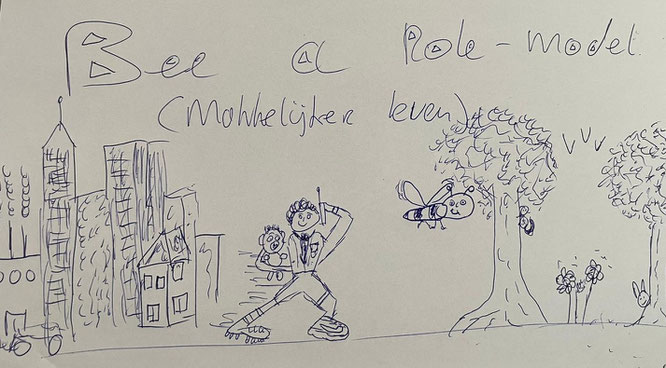 Bee a Role-model
(Makkelijker leven)